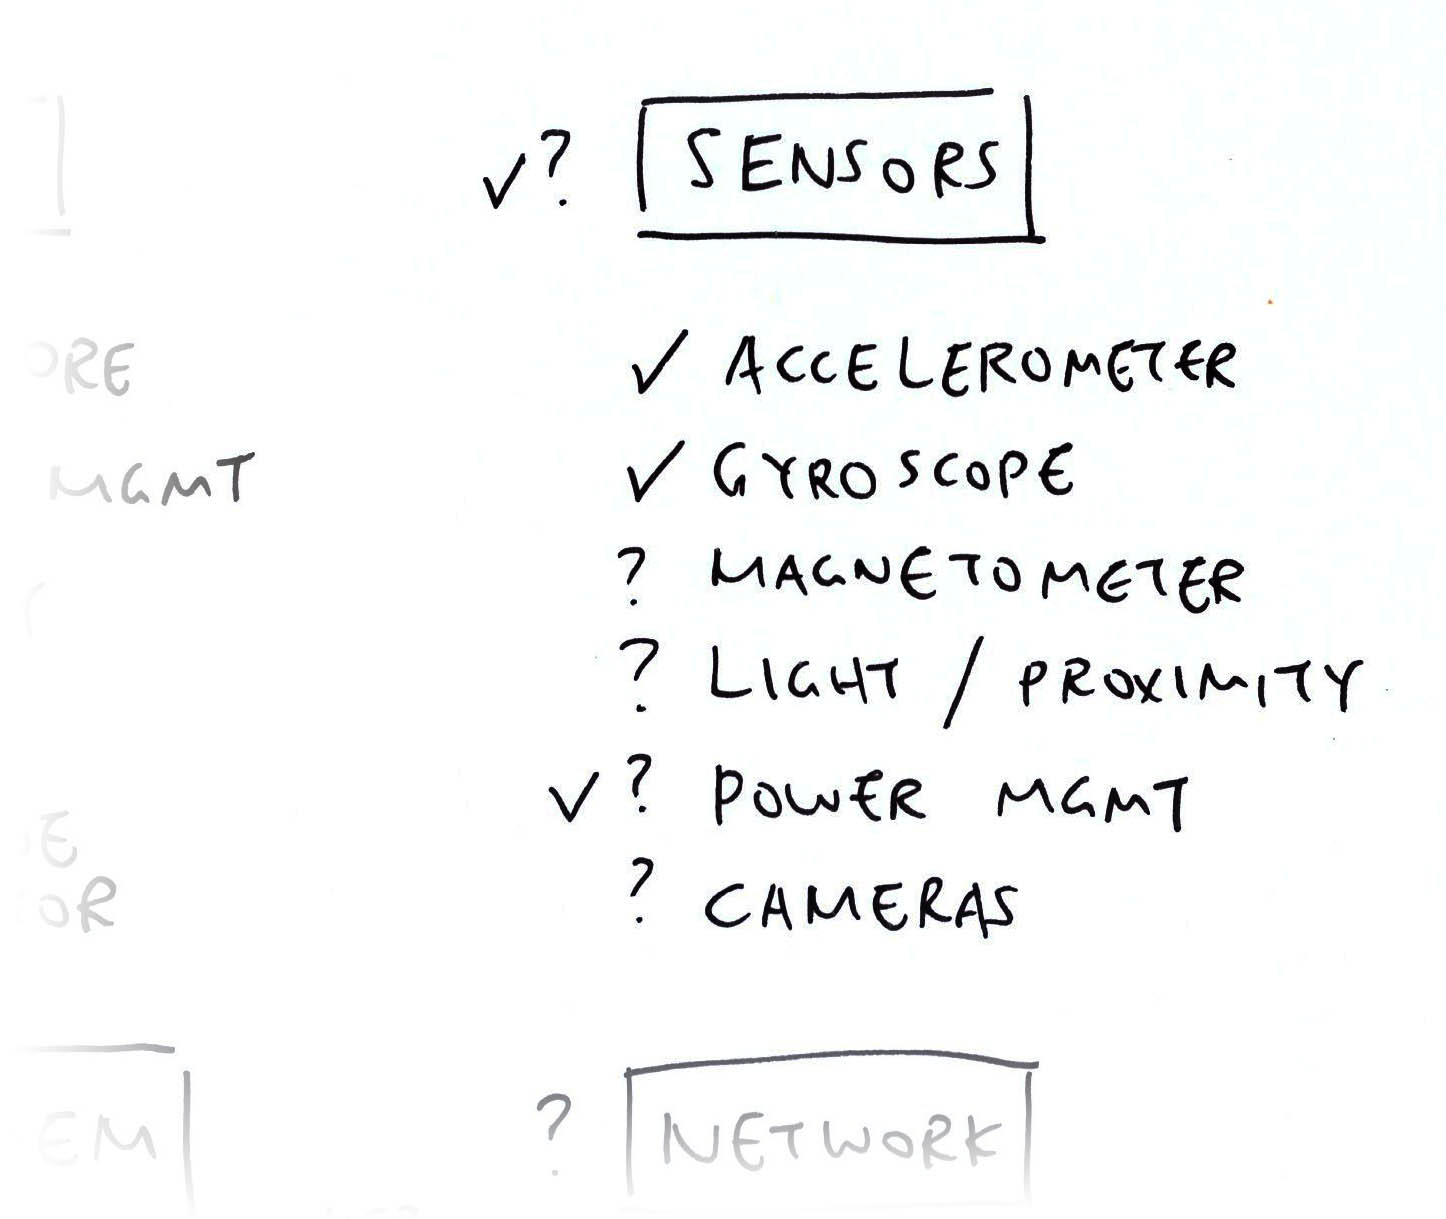 ✓? SENSORS
✓ ACCELEROMETER
✓ GYROSCOPE
? MAGNETOMETER
? LIGHT / PROXIMITY
✓ ? POWER MGMT
? CAMERAS
? NETWORK
MGMT